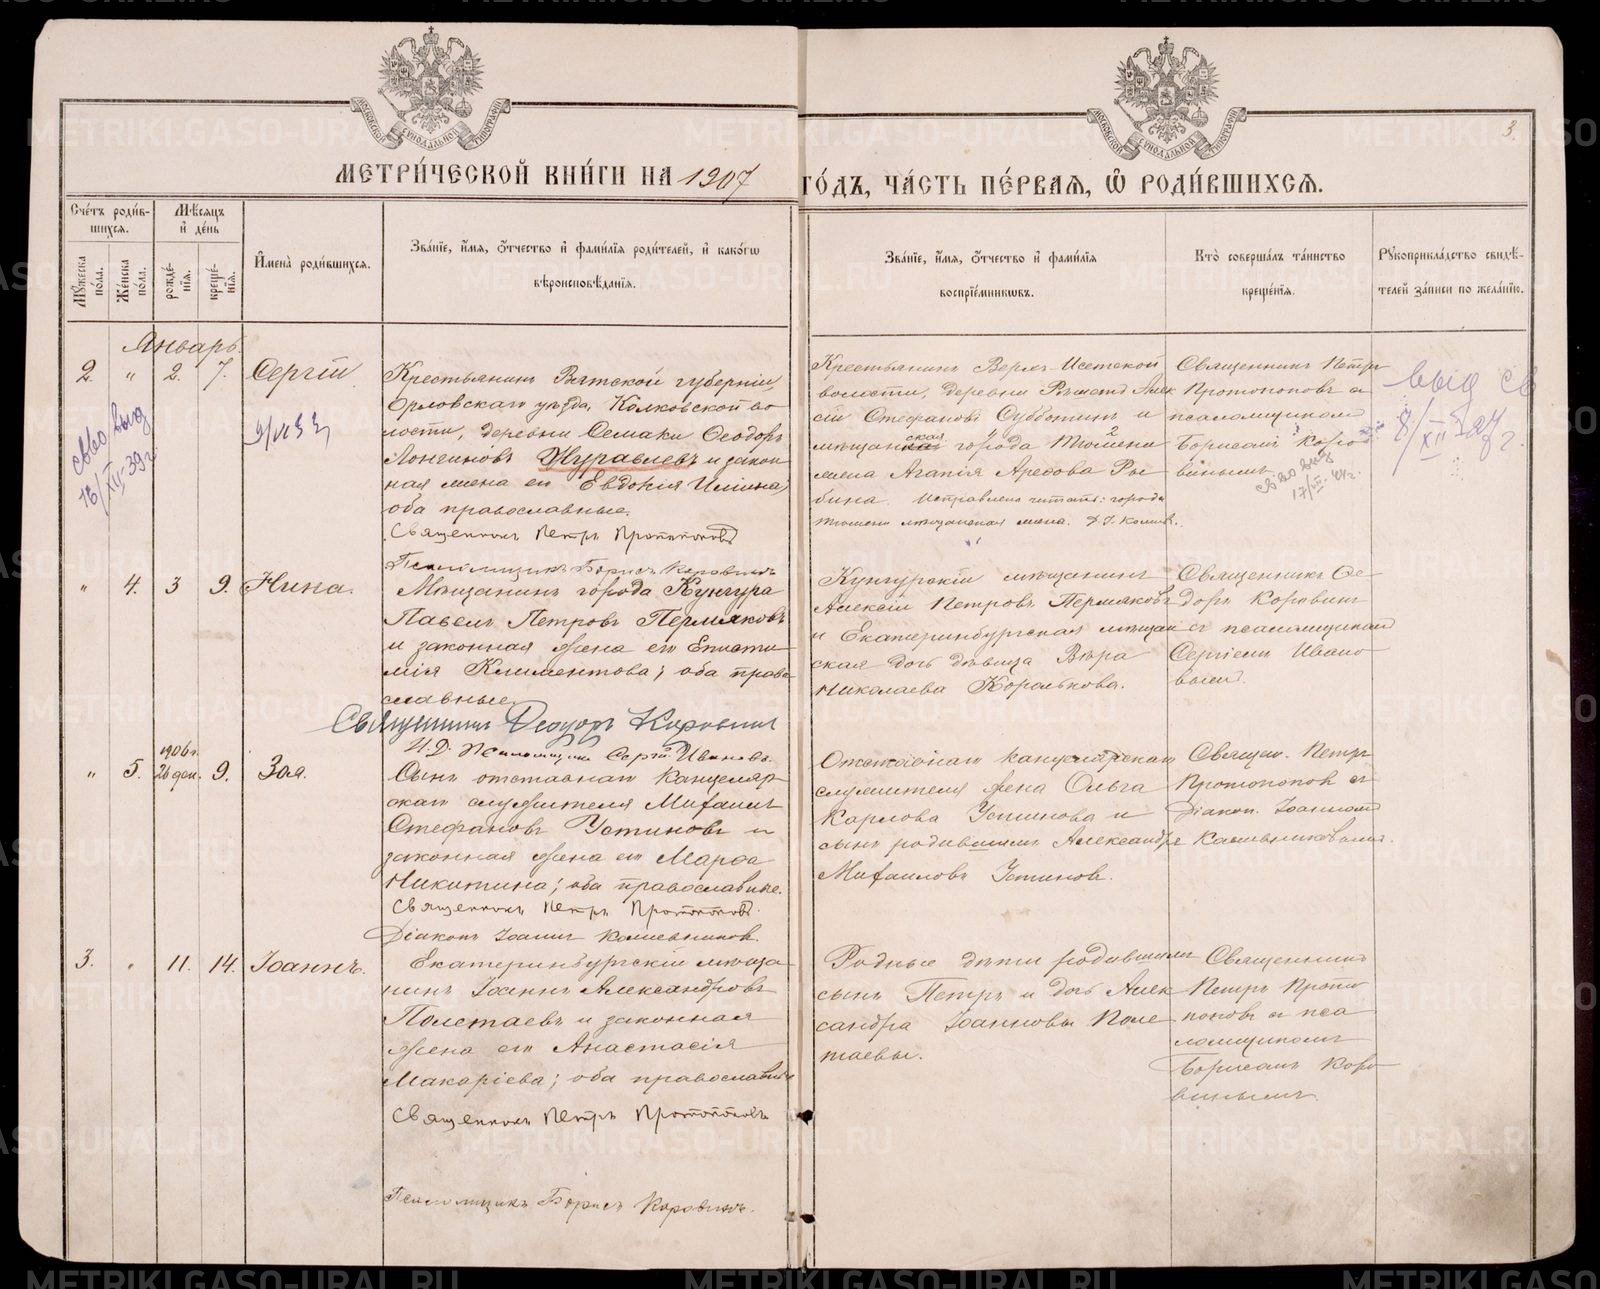 МЕТРИ́ЧЕСКОЙ КНИ́ГИ НА 1907
ГО́ДЪ, ЧА́СТЬ ПЕ́РВАЯ, Ѡ РОДИ́ВШИХСЯ.
3.
Сче́тъ роди́в-
шихся.
Мѣ́сяцъ
и де́нь
Мꙋ́жеска
по́ла.
Же́нска
по́ла.
рожде́-
нїя.
креще́-
нїя.
Имена̀ роди́вшихся.
Зва́нїе, и́мя, о́тчество и фами́лїя роди́телей, и како́гѡ
вѣроисповѣ́данїя.
Зва́нїе, и́мя, о́тчество и фами́лїя
воспрїе́мникѡвъ.
Кто̀ соверша́лъ та́инство
креще́нїя.
Рꙋкоприкла́дство свидѣ́-
телей за́писи по жела́нїю.
Январь.
2. „ 2. 7. Сергій
Крестьянинъ Вятской губерніи,
Орловскаго уѣзда, Колковской во
лости, деревни Семаки Ѳеодоръ
Лонгиновъ Журавлевъ и закон
ная жена его Евдокія Ильина,
оба православные.
Священникъ Петръ Протопоповъ
Псаломщикъ Борисъ Коровинъ
Крестьянинъ Верхъ-Исетской
волости, деревни Рѣшетъ Алек
сій Стефановъ Субботинъ и
мѣщанская города Тюмени
жена Агапія Арефова Ры
бина. Исправлено читать: города
Тюмени мѣщанская жена.
Священникъ Петръ
Протопоповъ съ
псаломщикомъ
Борисомъ Коро
винымъ
св-во выд
16/XII-39г
св-во выд
17/III-44г.
выд св
8/XII-
„ 4. 3 9. Нина.
Мѣщанинъ города Кунгура
Павелъ Петровъ Пермяковъ
и законная жена его Еписти
мія Климентова; оба право
славные.
Священникъ Ѳеодоръ Коровинъ
И.Д. Псаломщика Сергій Ивановъ.
Кунгурскій мѣщанинъ
Алексій Петровъ Пермяковъ
и Екатеринбургская мѣщан
ская дочь дѣвица Вѣра
Николаева Королькова.
Священникъ Ѳе-
доръ Коровинъ
съ псаломщикомъ
Сергіемъ Ивано
вымъ.
„ 5. 1906г. 26 дек. 9. Зоя.
Сынъ отставнаго канцеляр
скаго служителя Михаилъ
Стефановъ Устиновъ и
законная жена его Марѳа
Никитина; оба православные.
Священникъ Петръ Протопоповъ.
Діаконъ Іоаннъ Калашниковъ.
Отставнаго канцелярскаго
служителя жена Ольга
Карлова Устинова и
сынъ родившихъ Александръ
Михаиловъ Устиновъ.
Священ. Петръ
Протопоповъ съ
Діакон. Іоанномъ
Калашниковымъ.
3. „ 11. 14. Іоаннъ.
Екатеринбургскій мѣща
нинъ Іоаннъ Александровъ
Полетаевъ и законная
жена его Анастасія
Макаріева; оба православные
Священникъ Петръ Протопоповъ
Псаломщикъ Борисъ Коровинъ.
Родные дѣти родившихъ
сынъ Петръ и дочь Алек
сандра Іоанновы Поле
таевы.
Священникъ
Петръ Прото
поповъ съ пса
ломщикомъ
Борисомъ Коро
винымъ.
METRIKI.GASO-URAL.RU